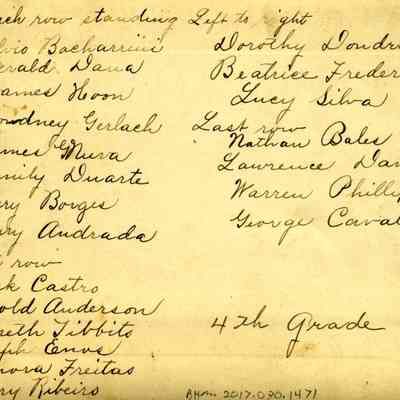 ch row standing Left to right
lvio Bacharriiii
erald Dana
ames Hoon
odney Gerlach
mes Mura
mily Duarte
ry Borges
ry Andrada
row
k Castro
old Anderson
seth Tibbits
ph Enos
nora Freitas
ry Ribeiro
Dorothy Dondr
Beatrice Freder
Lucy Silva
Last row
Nathan Bales
Lawrence Dan
Warren Phillip
George Caval
4th Grade
2017.030.1471